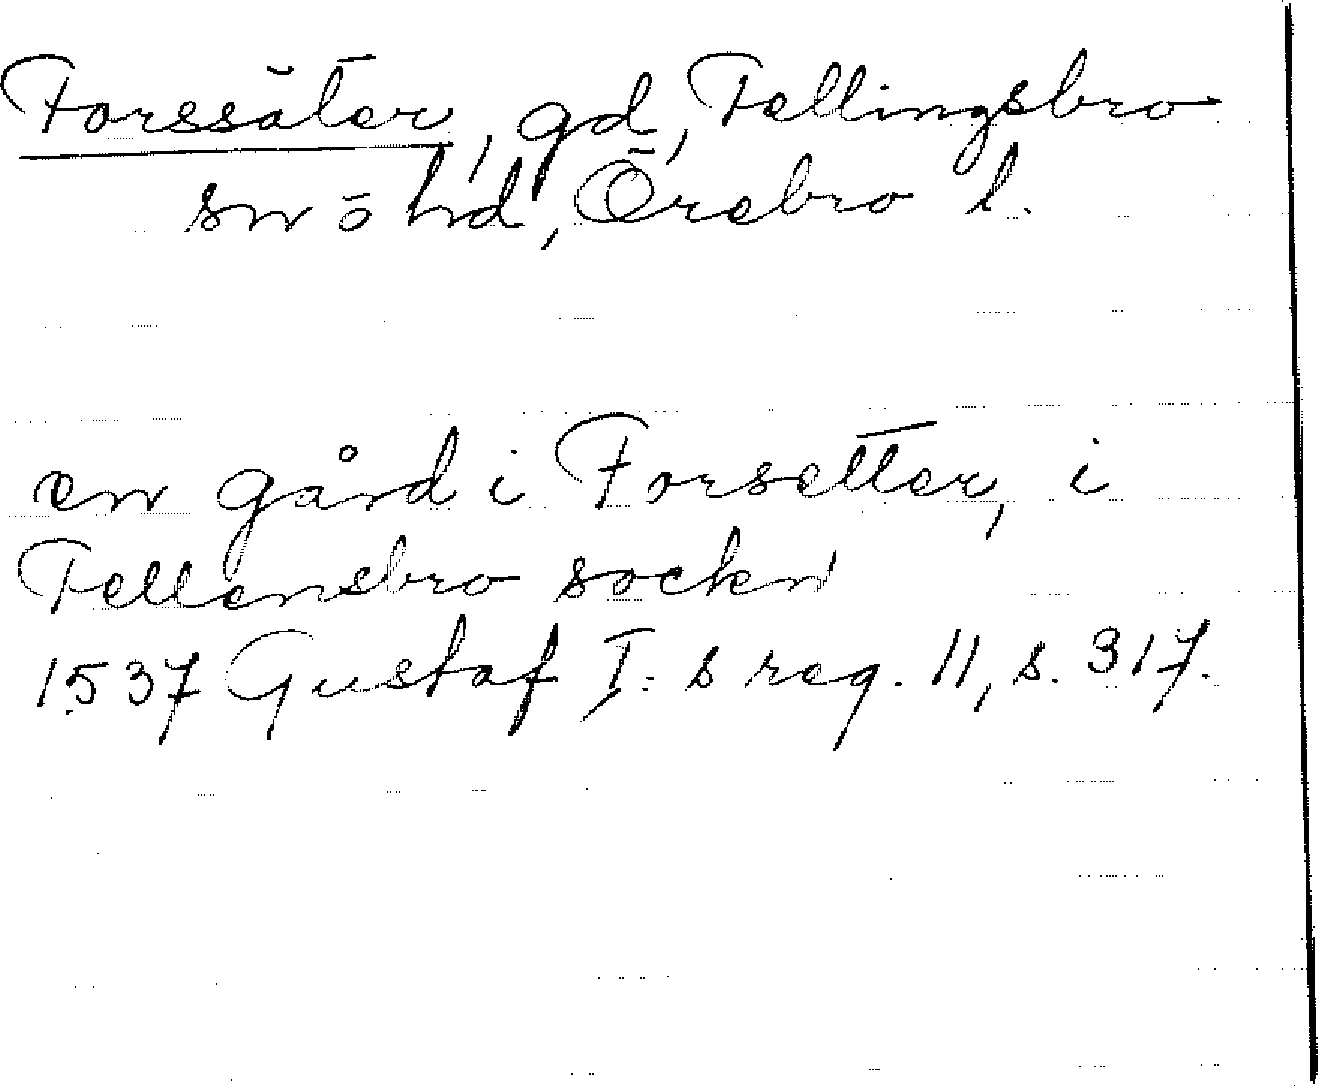 Forssäter, gd, Fellingsbro
sn o hd, Örebro l.
en gård i Forsetter, i
Fellensbro sockn
1537 Gustaf I:s reg. 11, s. 317.